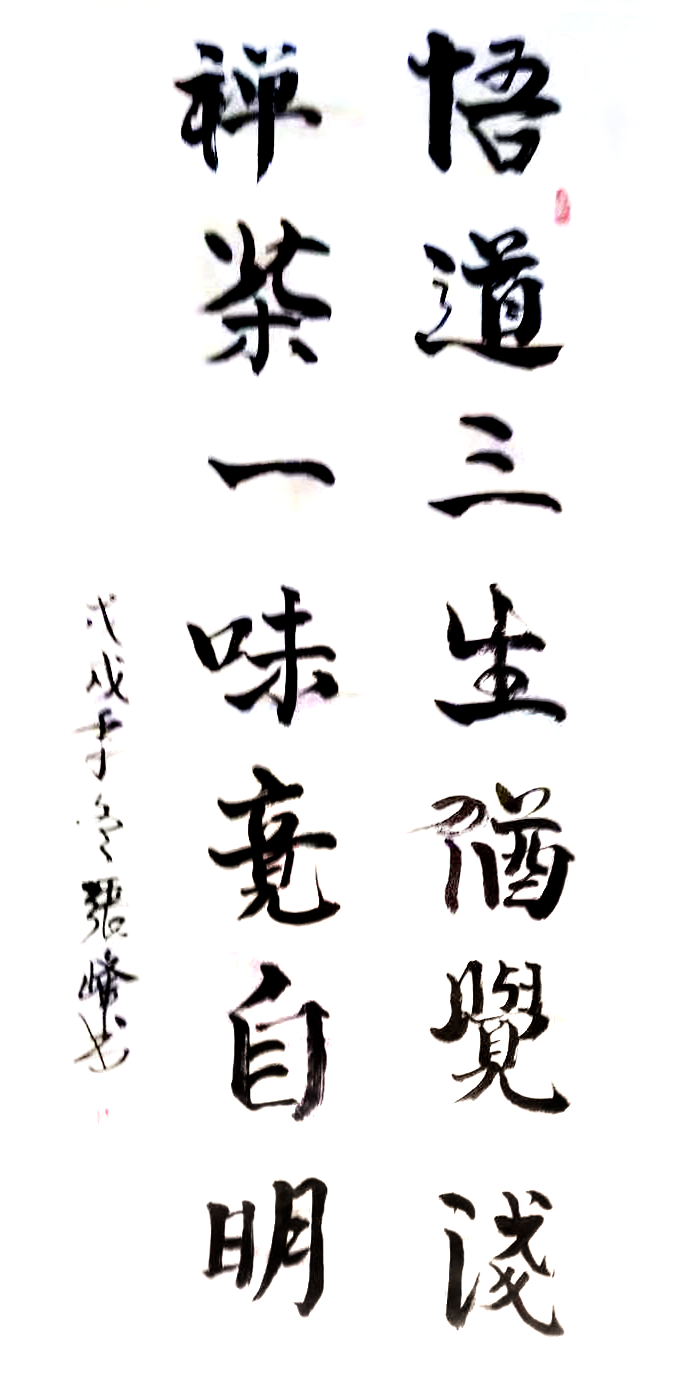 悟道三生猶覺淺
禅柴一味竟自明
戊戌年冬張峰书